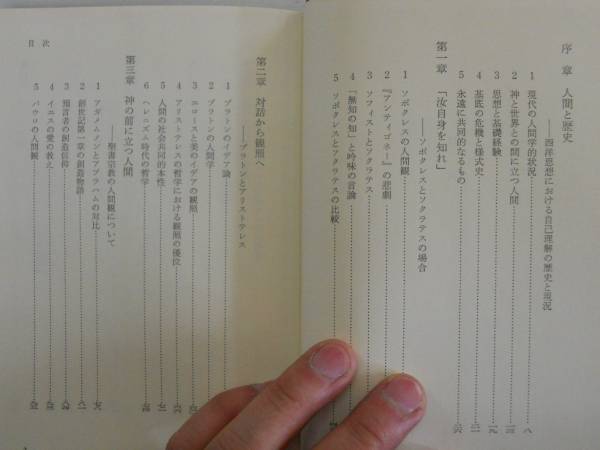 序章 人間と歴史
――西洋思想における自己理解の歴史と現況
1 現代の人間学的状況 八
2 神と世界との間に立つ人間
3 思想と基礎経験 一九
4 基底の危機と様式史
5 永遠に共同的なるもの
第一章 「汝自身を知れ」
――ソポクレスとソクラテスの場合
1 ソポクレスの人間観
2 『アンティゴネー』の悲劇
3 ソフィストとソクラテス
4 「無知の知」と吟味の言論
5 ソポクレスとソクラテスの比較
目次
第二章 対話から観照へ
――プラトンとアリストテレス
1 プラトンのイデア論
2 プラトンの人間学
3 エロースと美のイデアの観照
4 アリストテレスの哲学における観照の優位
5 人間の社会共同的本性
6 ヘレニズム時代の哲学
第三章 神の前に立つ人間
――聖書宗教の人間観について
1 アガメムノンとアブラハムの対比
2 創世記第一章の創造物語
3 預言者の創造信仰
4 イエスの愛の教え
5 パウロの人間観